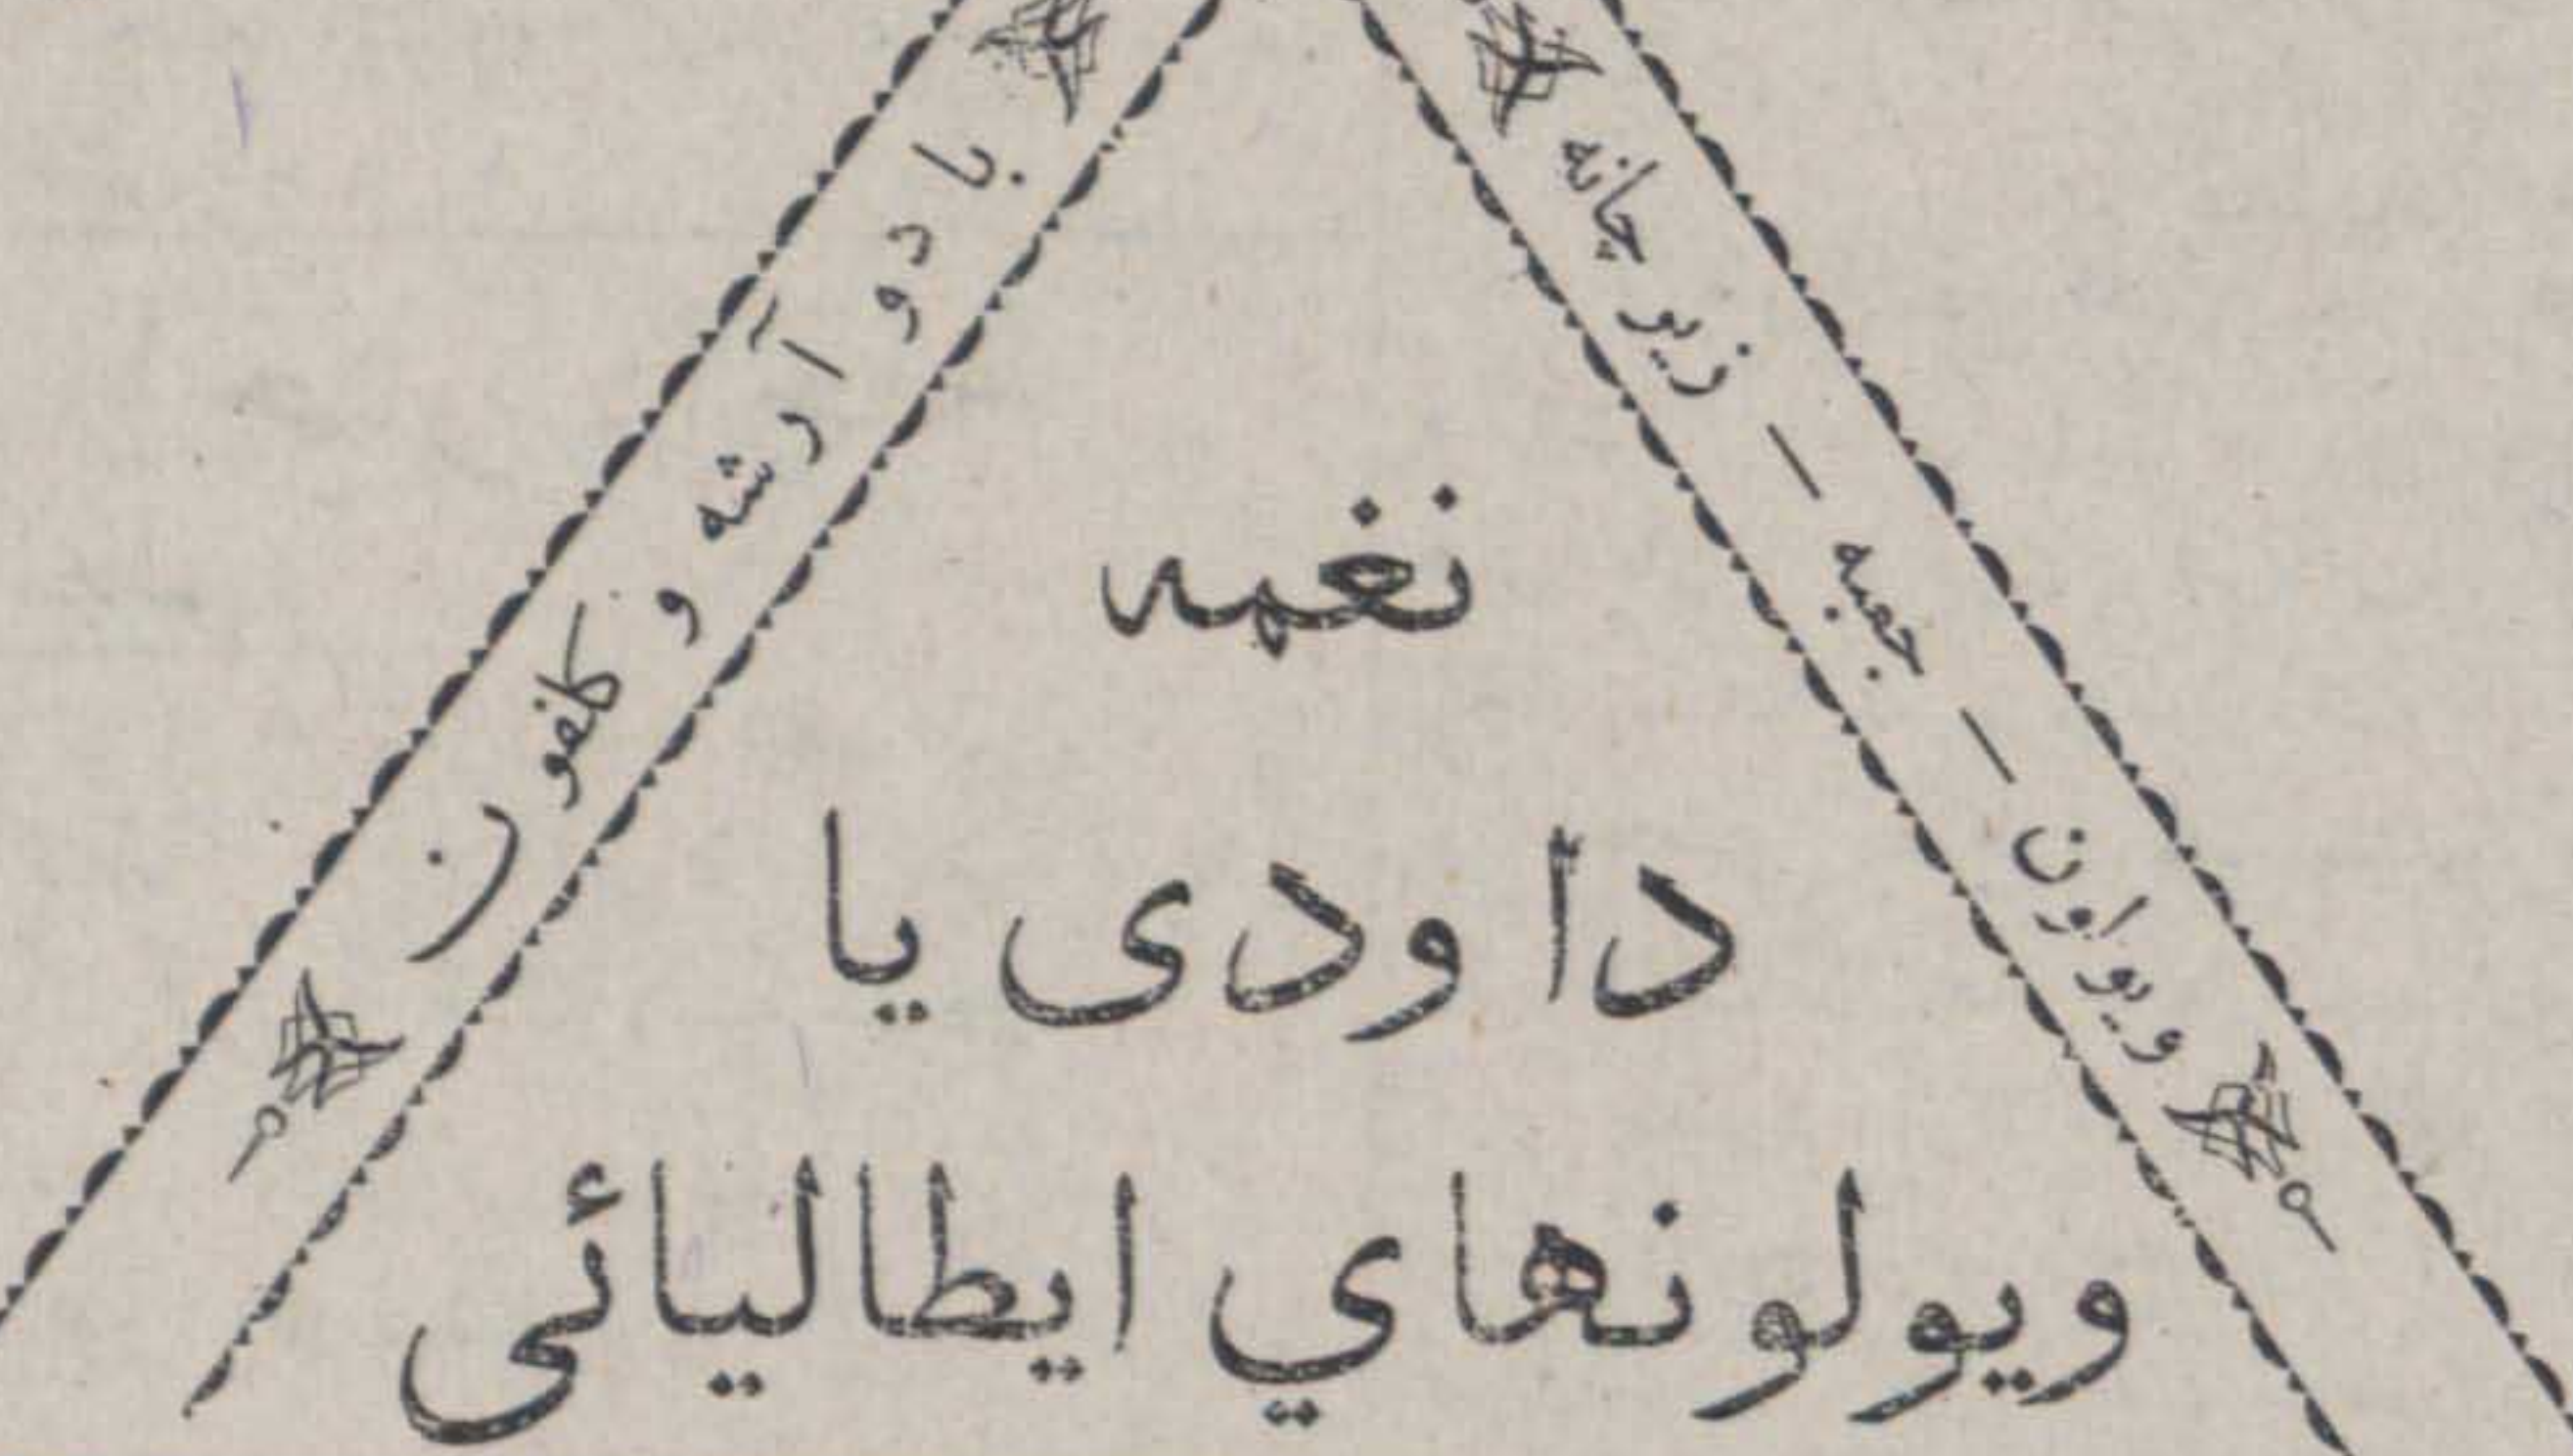 ویولون — جعبه — زیر چانه
با دو آرشه و کلفون
نغمه
داودی یا
ویولونهاي ایطالیائی